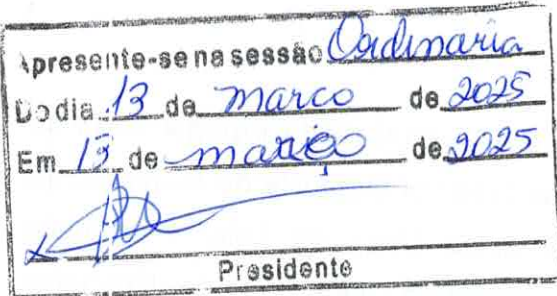 Apresente-se na sessão Ordinaria
Do dia 13 de marco de 2025
Em 13 de março de 2025
Presidente